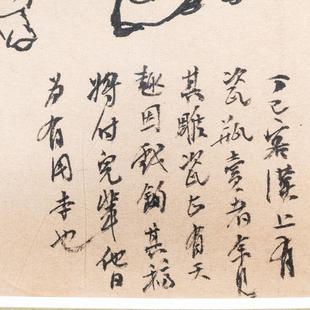 丁巳客漢上有
瓷瓶賣者余見
其雕瓷有天
趣因戲鉤其稿
將付兒輩他日
為有用也